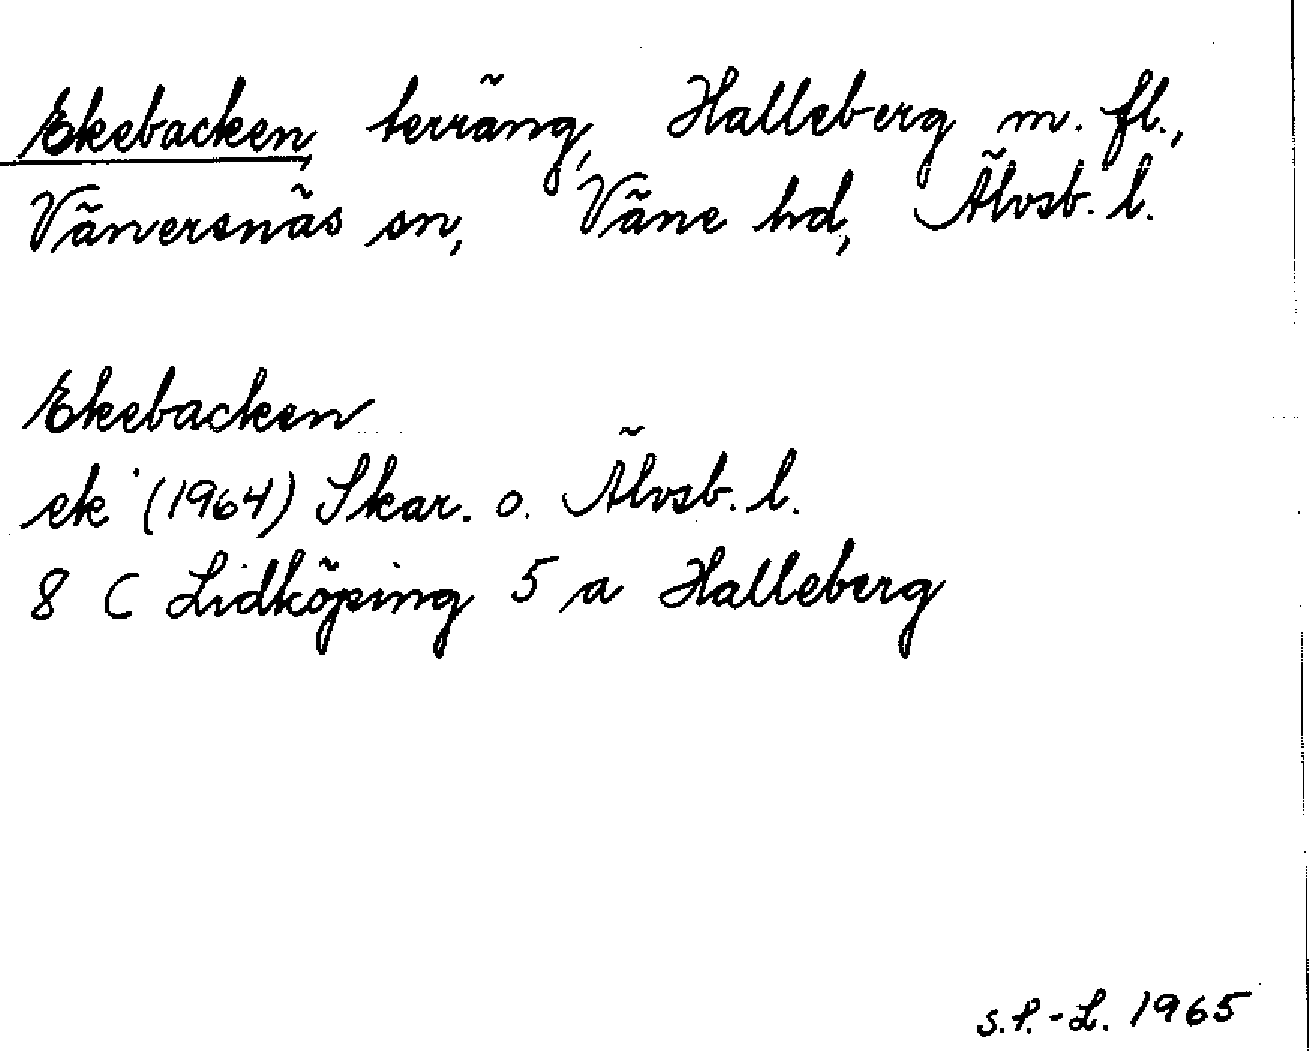 Ekebacken, terräng, Halleberg m. fl.,
Vänersnäs sn, Väne hd, Älvsb. l.
Ekebacken
ek (1964) Skar. o. Älvsb. l.
8 C Lidköping 5 a Halleberg
S.P.-L. 1965